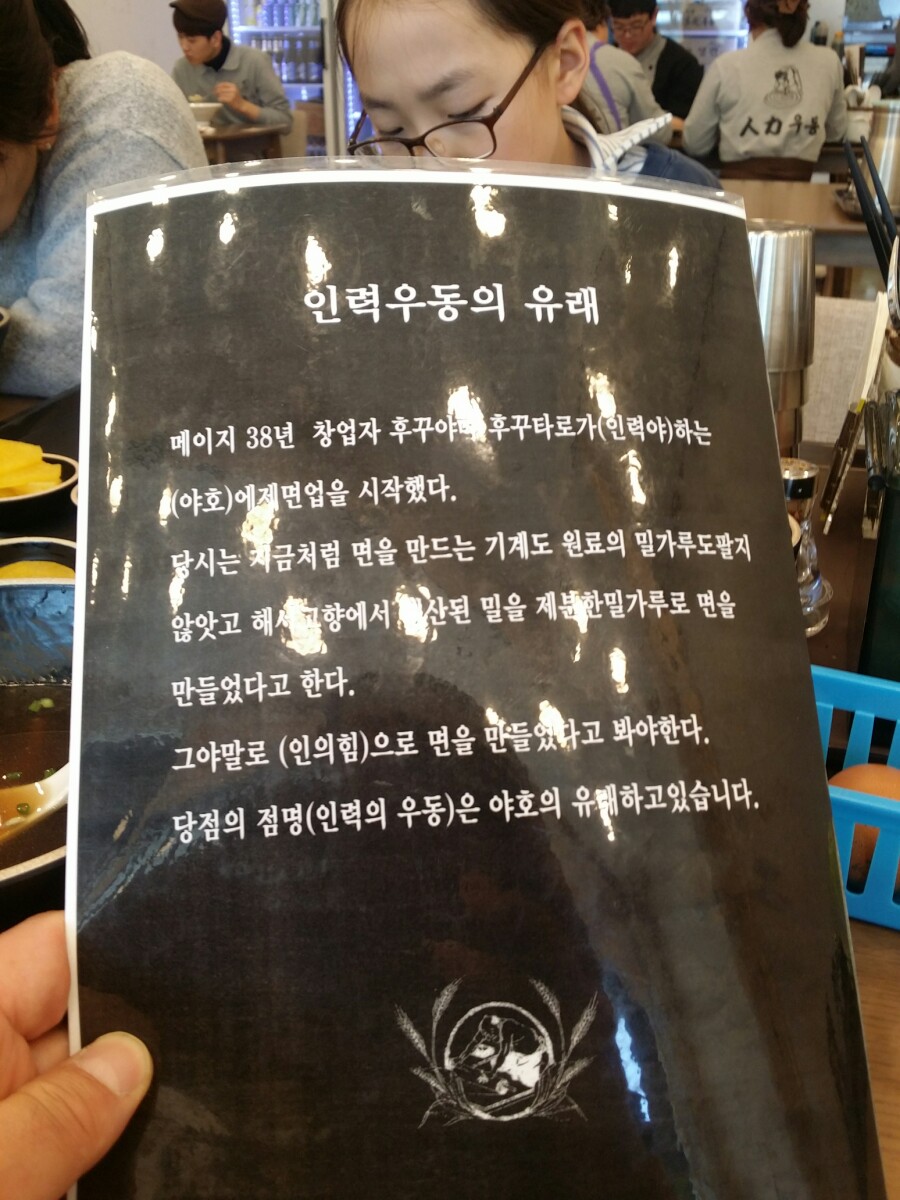 人力우동
인력우동의 유래
메이지 38년 창업자 후꾸야마 후꾸타로가(인력야)하는
(야호)에제면업을 시작했다.
당시는 지금처럼 면을 만드는 기계도 원료의 밀가루도팔지
않앗고 해서고향에서 생산된 밀을 제분한밀가루로 면을
만들었다고 한다.
그야말로 (인의힘)으로 면을 만들었다고 봐야한다.
당점의 점명(인력의 우동)은 야호의 유래하고있습니다.